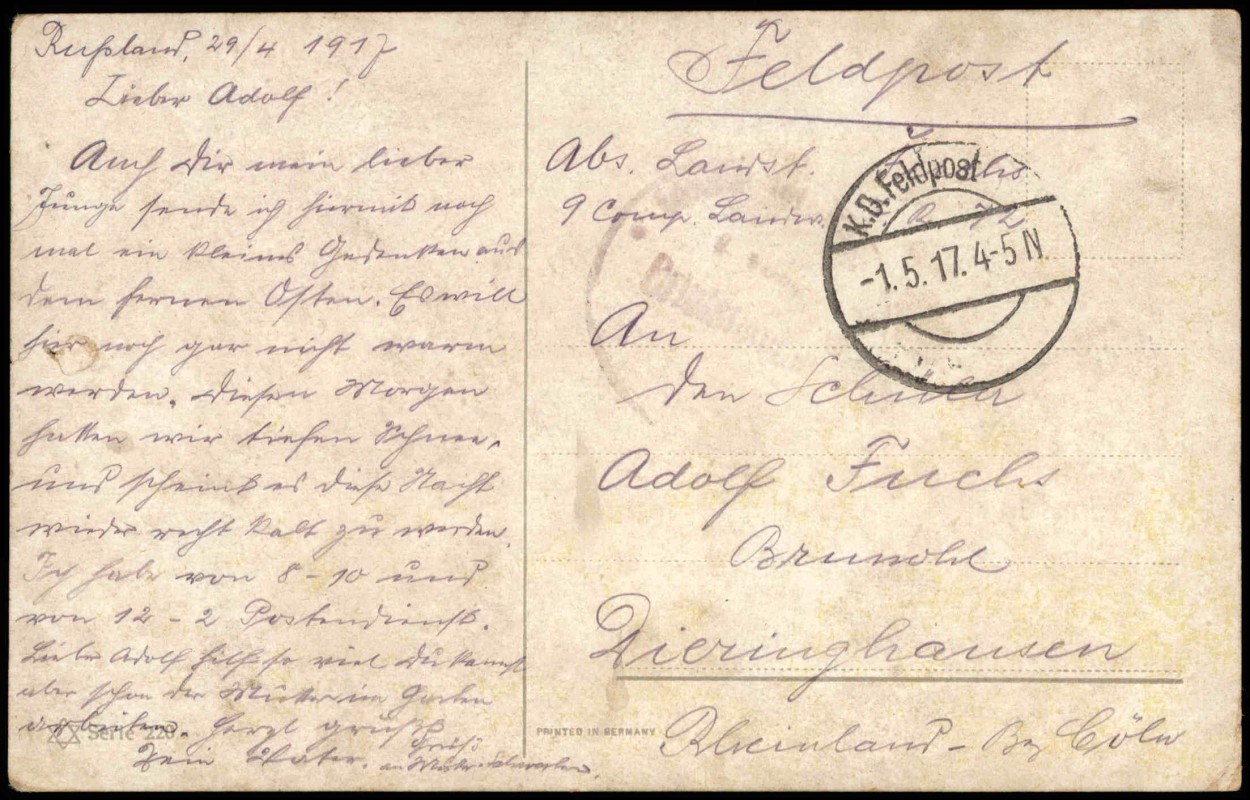 Rußland, 29/4 1917
Lieber Adolf!
Auch Dir mein lieber
Junge sende ich hiermit noch
mal ein kleines Gedenken aus
dem fernen Osten. Es will
hier noch gar nicht warm
werden. Diesen Morgen
hatten wir tiefen Schnee,
und scheint es diese Nacht
wieder recht kalt zu werden.
Ich habe von 8-10 und
von 12-2 Postendienst.
Liebe Adolf hilf so viel Du kannst
aber schon der Mutter im Garten
arbeiten. Herzl grüßt
Dein Vater.
Gruß
an Mutter
Serie 220
PRINTED IN GERMANY
Feldpost
Abs. Landst. Fuchs
9 Comp. Landw. 72
K.D. Feldpost
-1.5.17. 4-5 N
An
den Schüler
Adolf Fuchs
Brunohl
Dieringhausen
Rheinland - Bz Cöln